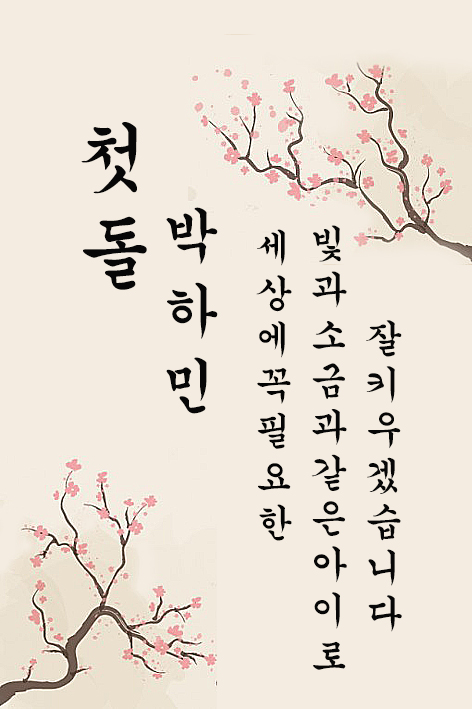 첫돌
박하민
세상에꼭필요한
빛과소금과같은아이로
잘키우겠습니다